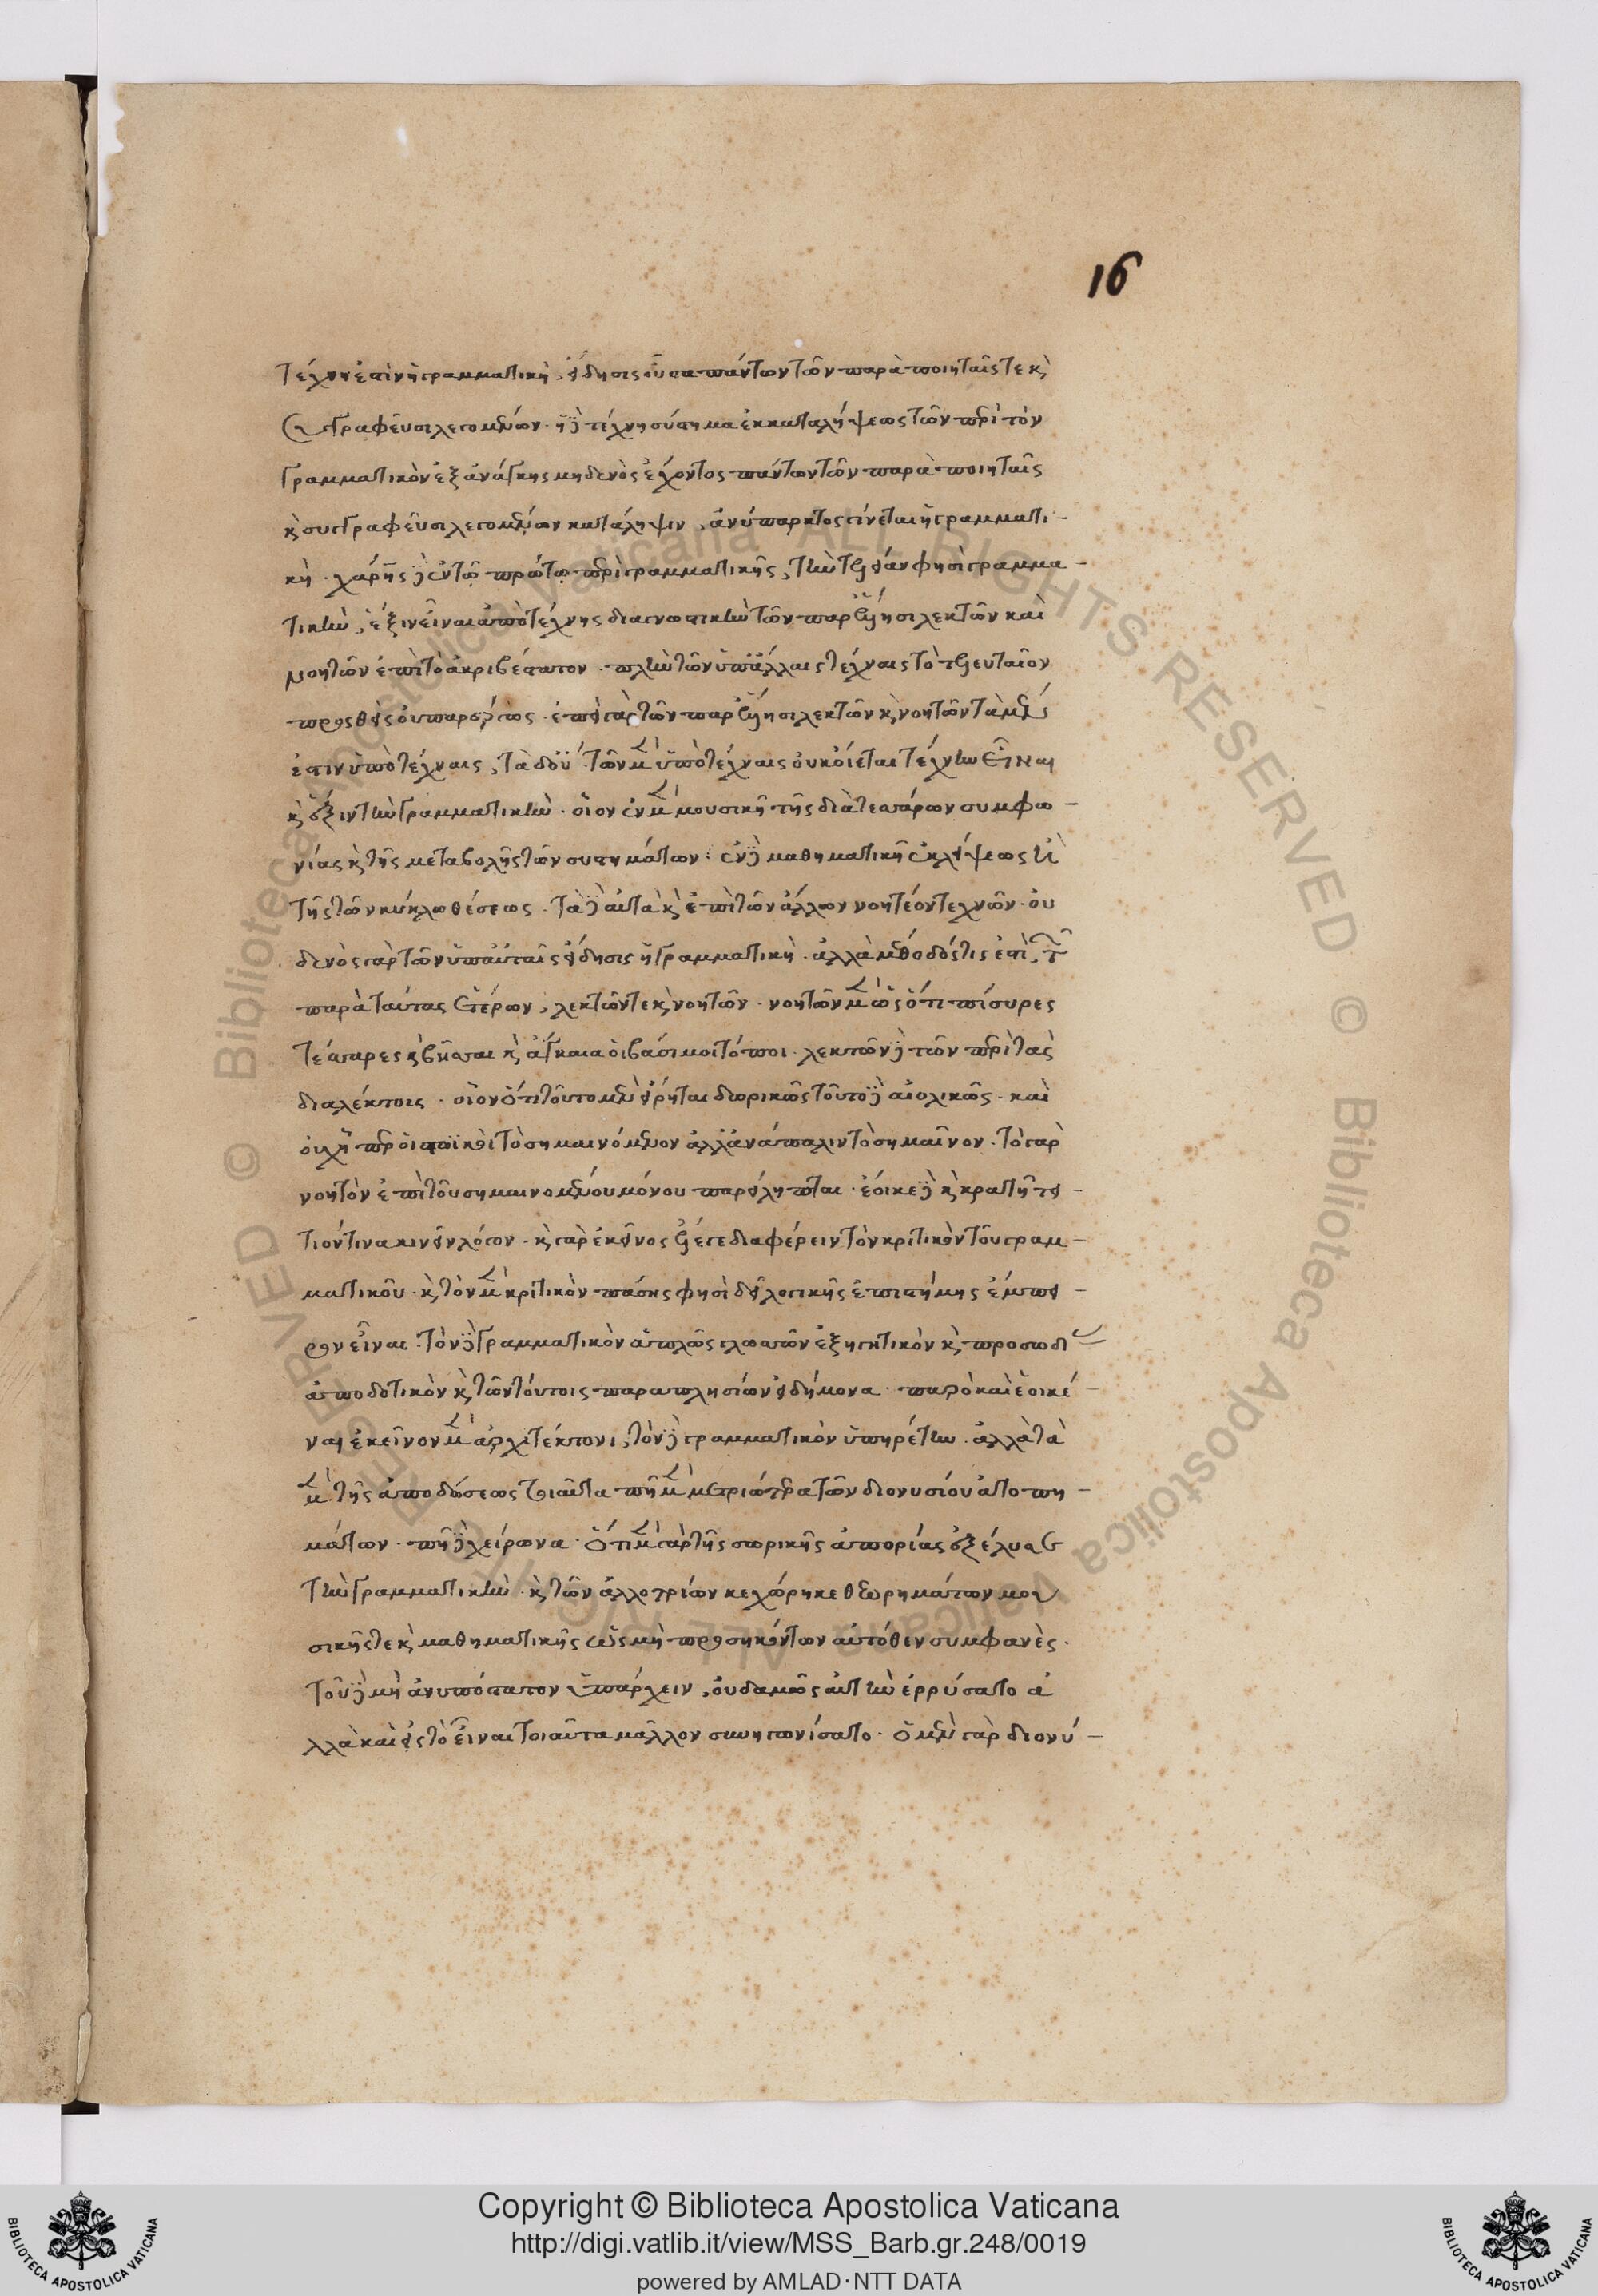 16
τέχνη ἐστὶν ἡ γραμματικὴ, εἴδησις οὖσα πάντων τῶν παρὰ ποιηταῖς τε κ̀
συγγραφεῦσι λεγομένων. ἡ δὲ τέχνη σύστημα ἐκ καταλήψεως τῶν περὶ τὸν
γραμματικὸν ἐξ ἀνάγκης μηδενὸς ἔχοντος πάντων τῶν παρὰ ποιηταῖς
κ̀ συγγραφεῦσι λεγομένων κατάληψιν, ἀνύπαρκτος γίνεται ἡ γραμματι-
κὴ. χάρης δὲ ἐν τῷ πρώτῳ περὶ γραμματικῆς, τὴν τελείαν φησὶ γραμμα-
τικὴν, ἕξιν εἶναι ἀπὸ τέχνης διαγνωστικὴν τῶν παρ' ἕλλησι λεκτῶν καὶ
νοητῶν ἐπὶ τὸ ἀκριβέστατον. πλὴν τῶν ὑπ' ἄλλαις τέχναις τὸ τελευταῖον
προσθεὶς οὐ παρέργως. ἐπεὶ γὰρ τῶν παρ' ἕλλησι λεκτῶν κ̀ νοητῶν τὰ μέν
ἐστιν ὑπὸ τέχναις, τὰ δ' οὔ. τῶν μὲν ὑπὸ τέχναις οὐκ οἴεται τέχνην εἶναι
κ̀ ἕξιν τὴν γραμματικὴν. οἷον ἐν μὲν μουσικῇ τῆς διὰ τεσσάρων συμφω-
νίας κ̀ τῆς μεταβολῆς τῶν συστημάτων: ἐν δὲ μαθηματικῇ ἐκλείψεως ἢ
τῆς τῶν κύκλω θέσεως. τὰ δὲ αὐτὰ κ̀ ἐπὶ τῶν ἄλλων νοητέον τεχνῶν. οὐ
δενὸς γὰρ τῶν ὑπ' αὐταῖς εἴδησις ἡ γραμματικὴ. ἀλλὰ μέθοδός τις ἐστὶ, τῶν
παρὰ ταύτας ἑτέρων, λεκτῶν τε κ̀ νοητῶν. νοητῶν μὲν ὡς ὅτι πίσυρες
τέσσαρες κ̀ βῆσσαι κ̀ ἄγκαια οἱ βάσιμοι τόποι. λεκτῶν δὲ τῶν περὶ τὰς
διαλέκτοις. οἷον ὅτι τοῦτο μὲν εἴρηται δωρικῶς τοῦτο δὲ αἰολικῶς. καὶ
οὐχ ᾗπερ οἱ στωϊκοὶ τὸ σημαινόμενον ἀλλ' ἀνάπαλιν τὸ σημαῖνον. τὸ γὰρ
νοητὸν ἐπὶ τοῦ σημαινομένου μόνου παρείληπται. ἔοικε δὲ κ̀ κρατῆτει-
τιόν τινα κινεῖν λόγον. κ̀ γὰρ ἐκεῖνος ἔλεγε διαφέρειν τὸν κριτικὸν τοῦ γραμ-
ματικοῦ. κ̀ τὸν μὲν κριτικὸν πάσης φησὶ δεῖ λογικῆς ἐπιστήμης ἔμπει-
ρον εἶναι. τὸν δὲ γραμματικὸν ἁπλῶς γλωσσῶν ἐξηγητικὸν κ̀ προσωδίας
ἀποδοτικὸν κ̀ τῶν τούτοις παραπλησίων εἰδήμονα. παρὸ καὶ ἐοικέ-
ναι ἐκεῖνον μὲν ἀρχιτέκτονι, τὸν δὲ γραμματικὸν ὑπηρέτην. ἀλλὰ τὰ
μὲν τῆς ἀποδόσεως τοιαῦτα πῆ μὲν μετριώτερα τῶν διονυσίου ἀτοπη-
μάτων. πῆ δὲ χείρωνα. ὅτι μὲν γὰρ τῆς σωρικῆς ἀπορίας ἐξέλυσε
τὴν γραμματικὴν. κ̀ τῶν ἀλλοτρίων κεχώρηκε θεωρημάτων μου
σικῆς τε κ̀ μαθηματικῆς ὡς μὴ προσηκόντων αὐτόθεν συμφανὲς.
τοῦ δὲ μὴ ἀνυπόστατον ὑπάρχειν, οὐδαμῶς αὐτὴν ἐρρύσατο ἀ
λλὰ καὶ εἰς τὸ εἶναι τοιαῦτα μᾶλλον συνηγωνίσατο. ὁ μὲν γὰρ διονύ-
Copyright © Biblioteca Apostolica Vaticana
http://digi.vatlib.it/view/MSS_Barb.gr.248/0019
powered by AMLAD·NTT DATA